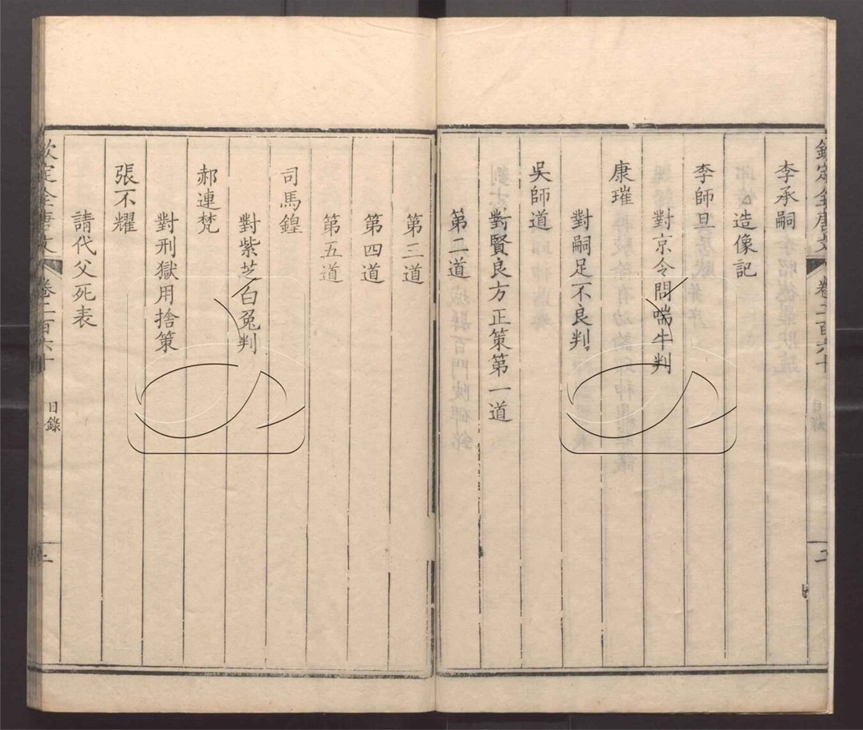 李承嗣
造像記
李師旦
對京令問喘牛判
康璀
對嗣足不良判
吳師道
對賢良方正策第一道
第二道
第三道
第四道
第五道
司馬鍠
對紫芝白兔判
郝連梵
對刑獄用捨策
張不耀
請代父死表
欽定全唐文
卷二百六十
目錄
二